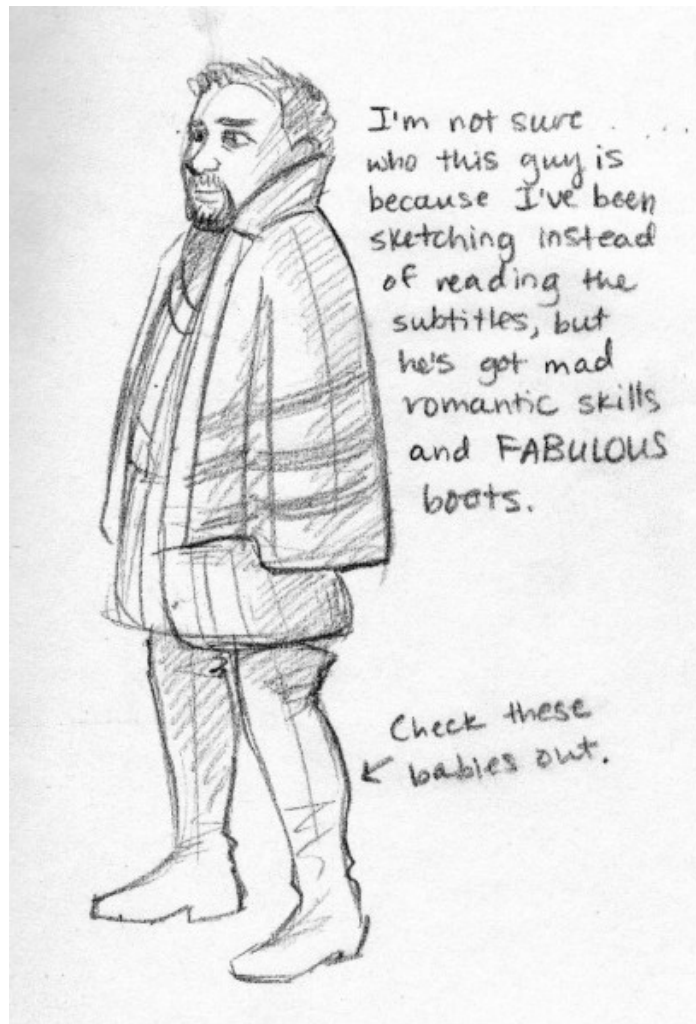 I'm not sure ....
who this guy is
because I've been
sketching instead
of reading the
subtitles, but
he's got mad
romantic skills
and FABULOUS
boots.
Check these
babies out.